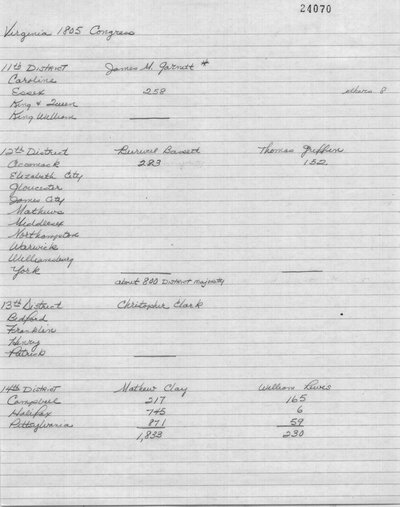 24070
Virginia 1805 Congress
11th District James M. Garnett #
Caroline
Essex 258 others 8
King & Queen
King William
12th District Burwell Bassett Thomas Griffin
Accomack 283 152
Elizabeth City
Gloucester
James City
Mathews
Middlesex
Northampton
Warwick
Williamsburg
York
about 800 District majority
13th District Christopher Clark
Bedford
Franklin
Henry
Patrick
14th District Mathew Clay William Lewis
Campbell 217 165
Halifax 745 6
Pittsylvania 871 59
1,833 230